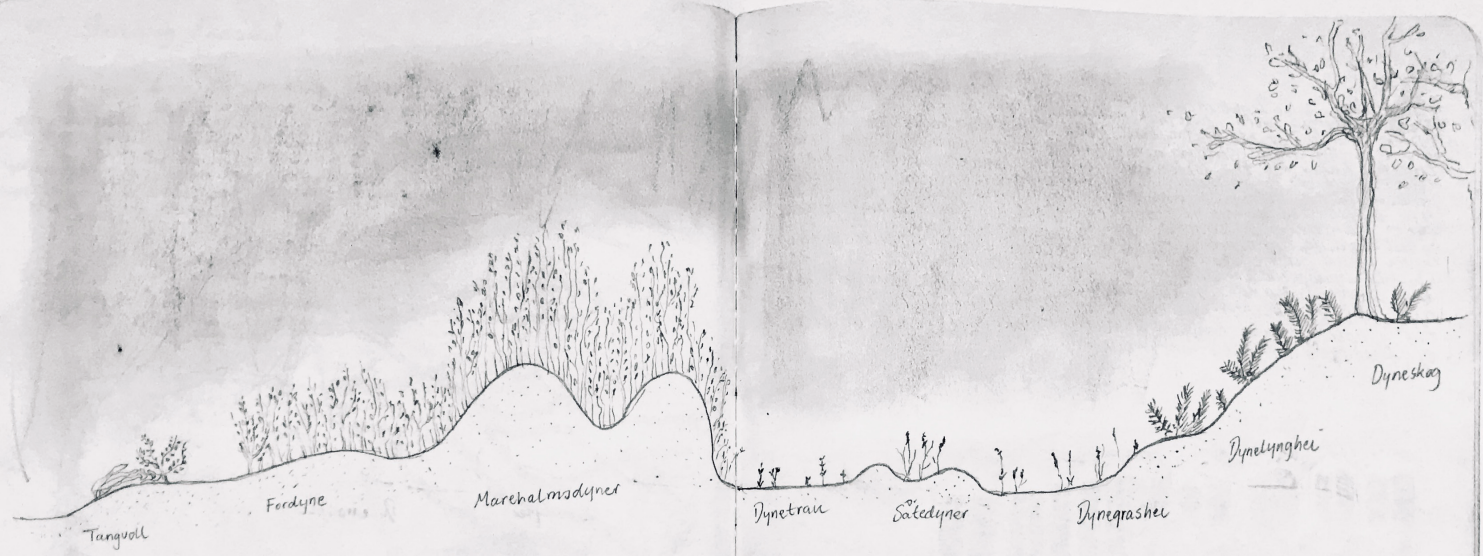 Tangvoll
Fordyne
Marehalmsdyner
Dynetrau
Såtedyner
Dynegrashei
Dynelynghei
Dyneskog